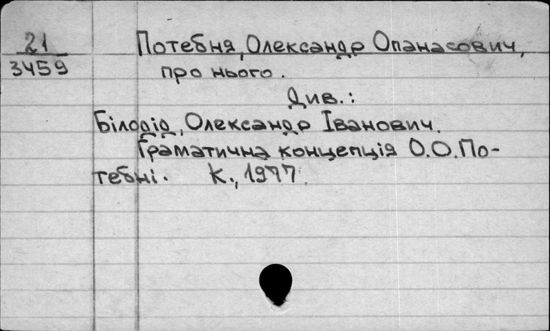 21
3459
Потебня, Олександр Опанасович,
про нього.
Див.:
Білодід, Олександр Іванович.
Граматична концепція О.О.По-
тебні. К., 1977.